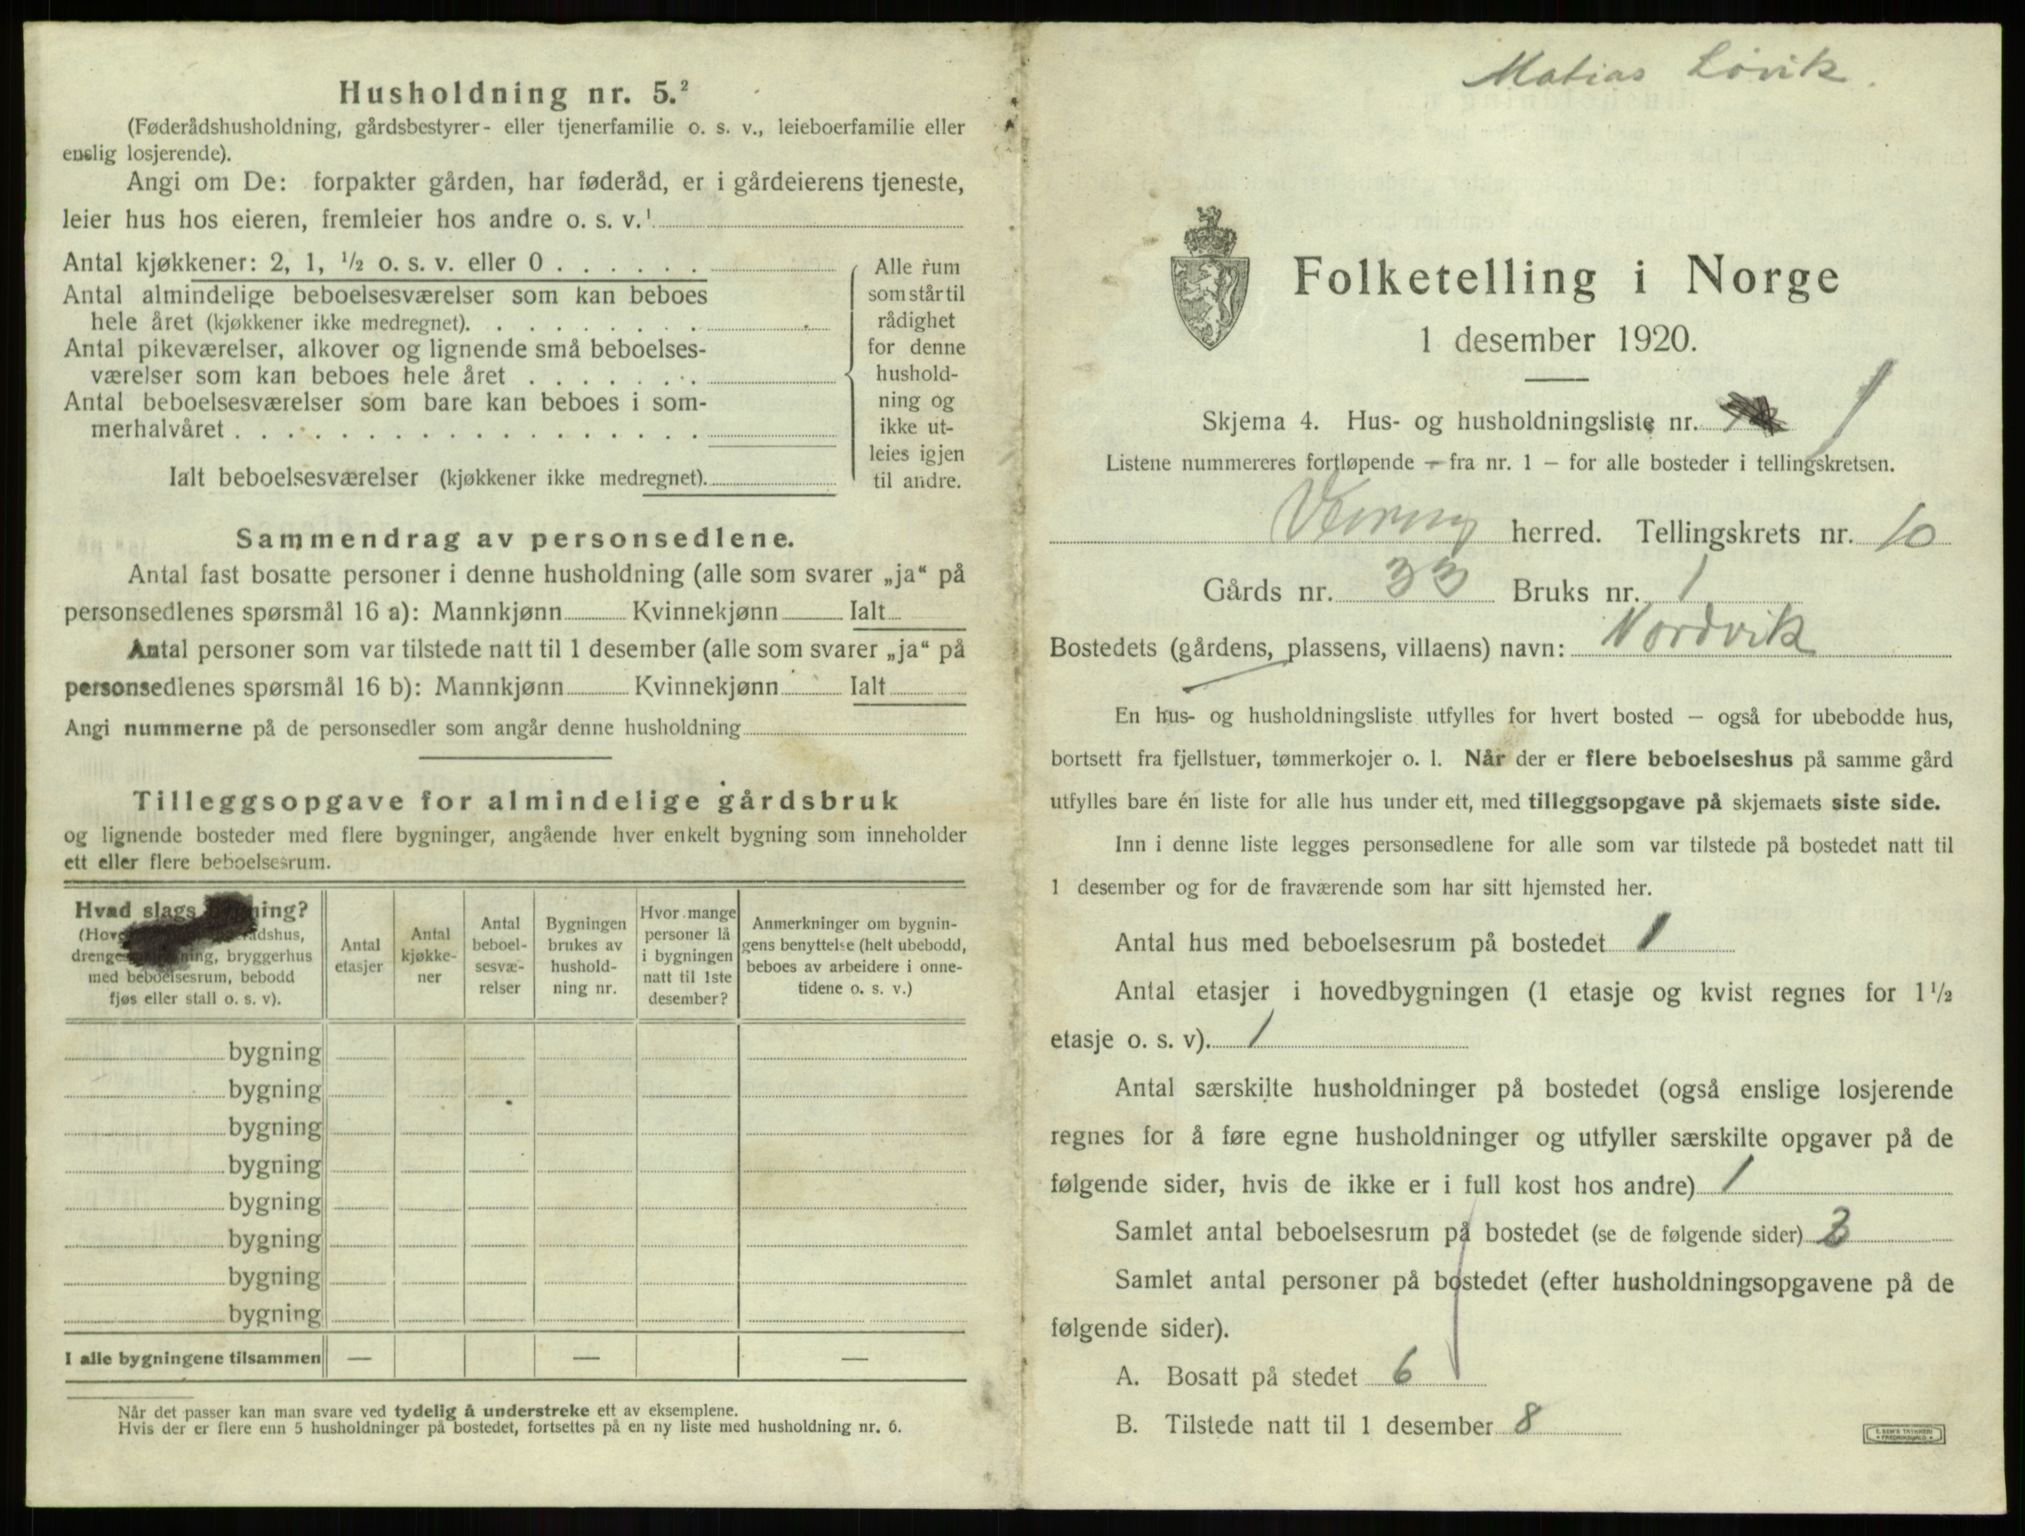 Husholdning nr. 5.²
(Føderådshusholdning, gårdsbestyrer- eller tjenerfamilie o. s. v., leieboerfamilie eller
enslig losjerende).
Angi om De: forpakter gården, har føderåd, er i gårdeierens tjeneste,
leier hus hos eieren, fremleier hos andre o. s. v.¹
Antal kjøkkener: 2, 1, ½ o. s. v. eller 0 . . . . . .
Antal almindelige beboelsesværelser som kan beboes
hele året (kjøkkener ikke medregnet). . . . . . . . .
Antal pikeværelser, alkover og lignende små beboelses-
værelser som kan beboes hele året . . . . . . .
Antal beboelsesværelser som bare kan beboes i som-
merhalvåret . . . . . . . . . . . . . . . . . .
Ialt beboelsesværelser (kjøkkener ikke medregnet).
Alle rum
som står til
rådighet
for denne
hushold-
ning og
ikke ut-
leies igjen
til andre.
Sammendrag av personsedlene.
Antal fast bosatte personer i denne husholdning (alle som svarer „ja“ på
personsedlenes spørsmål 16 a): Mannkjønn Kvinnekjønn Ialt
Antal personer som var tilstede natt til 1 desember (alle som svarer „ja“ på
personsedlenes spørsmål 16 b): Mannkjønn Kvinnekjønn Ialt
Angi nummerne på de personsedler som angår denne husholdning
Tilleggsopgave for almindelige gårdsbruk
og lignende bosteder med flere bygninger, angående hver enkelt bygning som inneholder
ett eller flere beboelsesrum.
Hvad slags bygning?
rådshus,
bryggerhus
med beboelsesrum, bebodd
fjøs eller stall o. s. v).
Antal
etasjer
Antal
kjøkke-
ner
Antal
beboel-
sesvæ-
relser
Bygningen
brukes av
hushold-
ning nr.
Hvor mange
personer lå
i bygningen
natt til 1ste
desember?
Anmerkninger om bygnin-
gens benyttelse (helt ubebodd,
beboes av arbeidere i onne-
tidene o. s. v.)
bygning
bygning
bygning
bygning
bygning
bygning
bygning
bygning
I alle bygningene tilsammen — — —
Når det passer kan man svare ved tydelig å understreke ett av eksemplene.
Hvis der er flere enn 5 husholdninger på bostedet, fortsettes på en ny liste med husholdning nr. 6.
Matias Løvik
Folketelling i Norge
1 desember 1920.
Skjema 4. Hus- og husholdningsliste nr. 1
Listene nummereres fortløpende — fra nr. 1 — for alle bosteder i tellingskretsen.
herred. Tellingskrets nr. 10
Gårds nr. 33 Bruks nr. 1
Bostedets (gårdens, plassens, villaens) navn: Nordvik
En hus- og husholdningsliste utfylles for hvert bosted — også for ubebodde hus,
bortsett fra fjellstuer, tømmerkojer o. l. Når der er flere beboelseshus på samme gård
utfylles bare én liste for alle hus under ett, med tilleggsopgave på skjemaets siste side.
Inn i denne liste legges personsedlene for alle som var tilstede på bostedet natt til
1 desember og for de fraværende som har sitt hjemsted her.
Antal hus med beboelsesrum på bostedet 1
Antal etasjer i hovedbygningen (1 etasje og kvist regnes for 1½
etasje o. s. v). 1
Antal særskilte husholdninger på bostedet (også enslige losjerende
regnes for å føre egne husholdninger og utfyller særskilte opgaver på de
følgende sider, hvis de ikke er i full kost hos andre) 1
Samlet antal beboelsesrum på bostedet (se de følgende sider)
Samlet antal personer på bostedet (efter husholdningsopgavene på de
følgende sider).
A. Bosatt på stedet 6
B. Tilstede natt til 1 desember 8